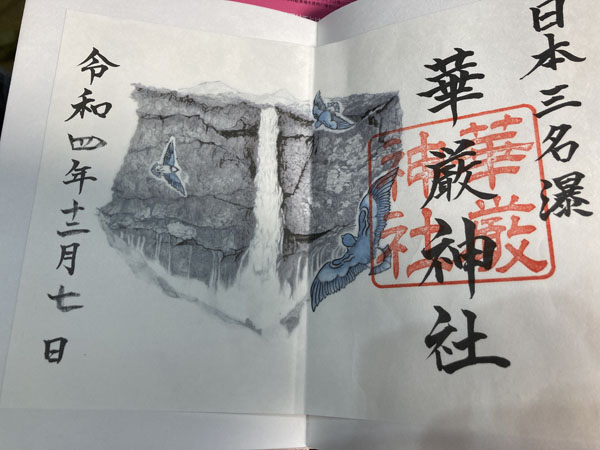 日本三名瀑
華厳神社
華厳
神社
令和四年十二月七日